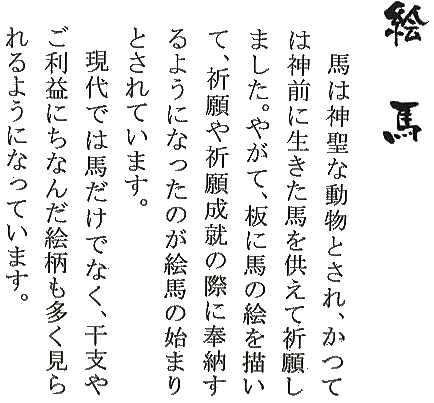 絵馬
馬は神聖な動物とされ、かつて
は神前に生きた馬を供えて祈願し
ました。やがて、板に馬の絵を描い
て、祈願や祈願成就の際に奉納す
るようになったのが絵馬の始まり
とされています。
現代では馬だけでなく、干支や
ご利益にちなんだ絵柄も多く見ら
れるようになっています。